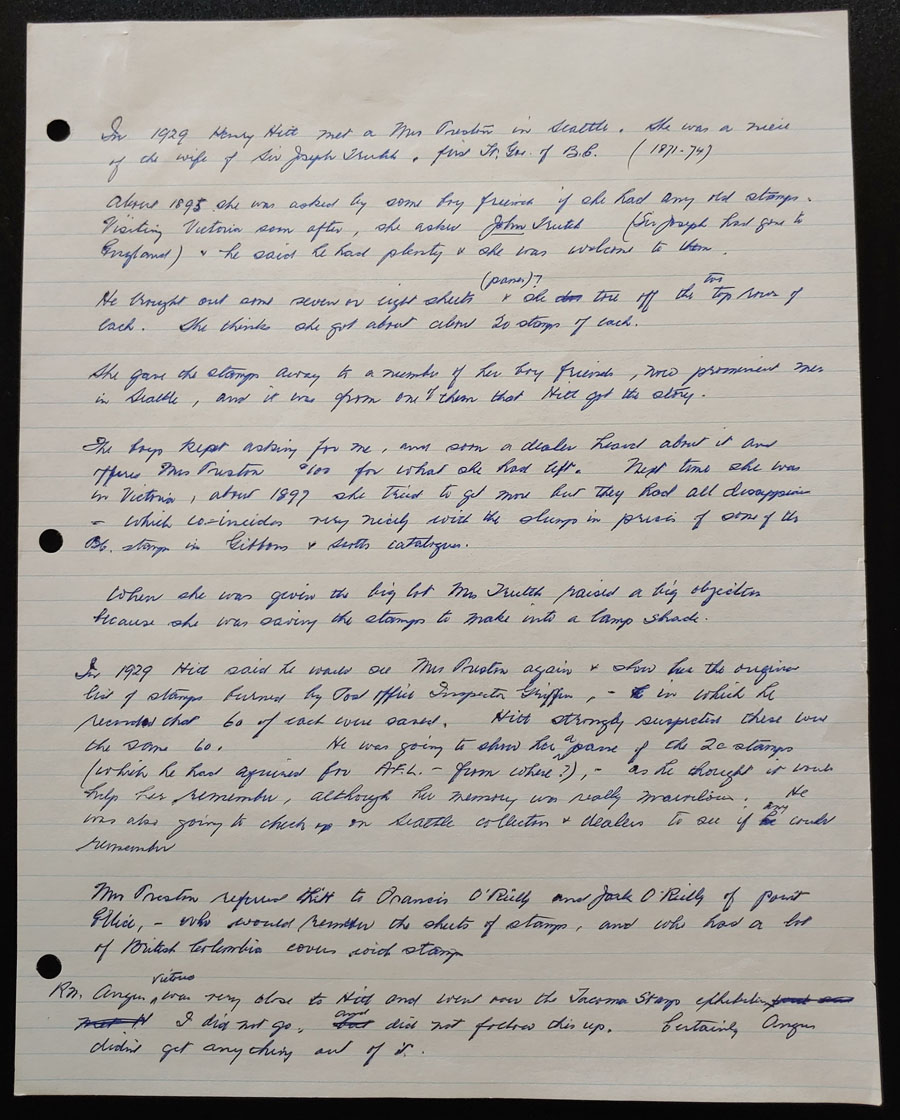 In 1929 Henry Hitt met a Mrs Preston in Seattle. She was a niece
of the wife of Sir Joseph Trutch, first Lt. Gov. of B.C. (1871-74)
About 1895 she was asked by some boy friends if she had any old stamps.
Visiting Victoria soon after, she asked John Trutch (Sir Joseph had gone to
England) & he said he had plenty & she was welcome to them.
(panes)? two
He brought out some seven or eight sheets & she tore off the top rows of
each. She thinks she got about about 20 stamps of each.
She gave the stamps away to a number of her boy friends, now prominent men
in Seattle, and it was from one of them that Hitt got the story.
The boys kept asking for me, and soon a dealer heard about it and
offered Mrs Preston $100 for what she had left. Next time she was
in Victoria, about 1897 she tried to get more but they had all
- which co-incides very nicely with the slump in prices of some of the
BC. stamps in Gibbons & Scotts catalogue.
When she was given the big lot Mrs Trutch raised a big objection
because she was saving the stamps to make into a lamp shade.
In 1929 Hitt said he would see Mrs Preston again & show her the original
list of stamps burned by Post Office Inspector Griffin, - in which he
records that 60 of each were saved. Hitt strongly suspected these were
the same 60. He was going to show her a pane of the 2c stamps
(which he had aquired from A.F.L. - from where?), - as he thought it would
help her remember, although her memory was really marvelous. He
was also going to check up on Seattle collectors & dealers to see if any could
remember
Mrs Preston referred Hitt to Francis O'Reilly and Jack O'Reilly of point
Ellice, - who would remember the sheets of stamps, and who had a lot
of British Colombia covers with stamps
Victoria
Rn. Angus, was very close to Hitt and went over the Tacoma Stamp exhibition
I did not go, and did not follow this up. Certainly Angus
didn't get anything out of it.